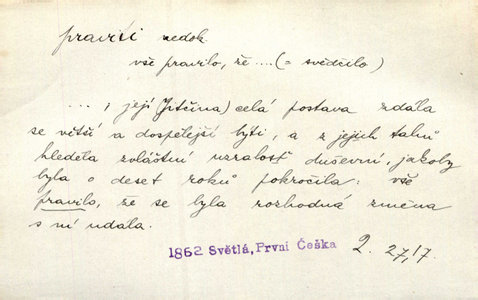 praviti nedok.
vše pravilo, že .... (= svědčilo)
... i její (Jitčina) celá postava zdála
se větší a dospělejší býti, a z jejich tahů
hleděla zvláštní uzralosť duševní, jakoby
byla o deset roků pokročila: vše
pravilo, že se byla rozhodná změna
s ní udála.
1862 Světlá, První Češka 2. 27,17.